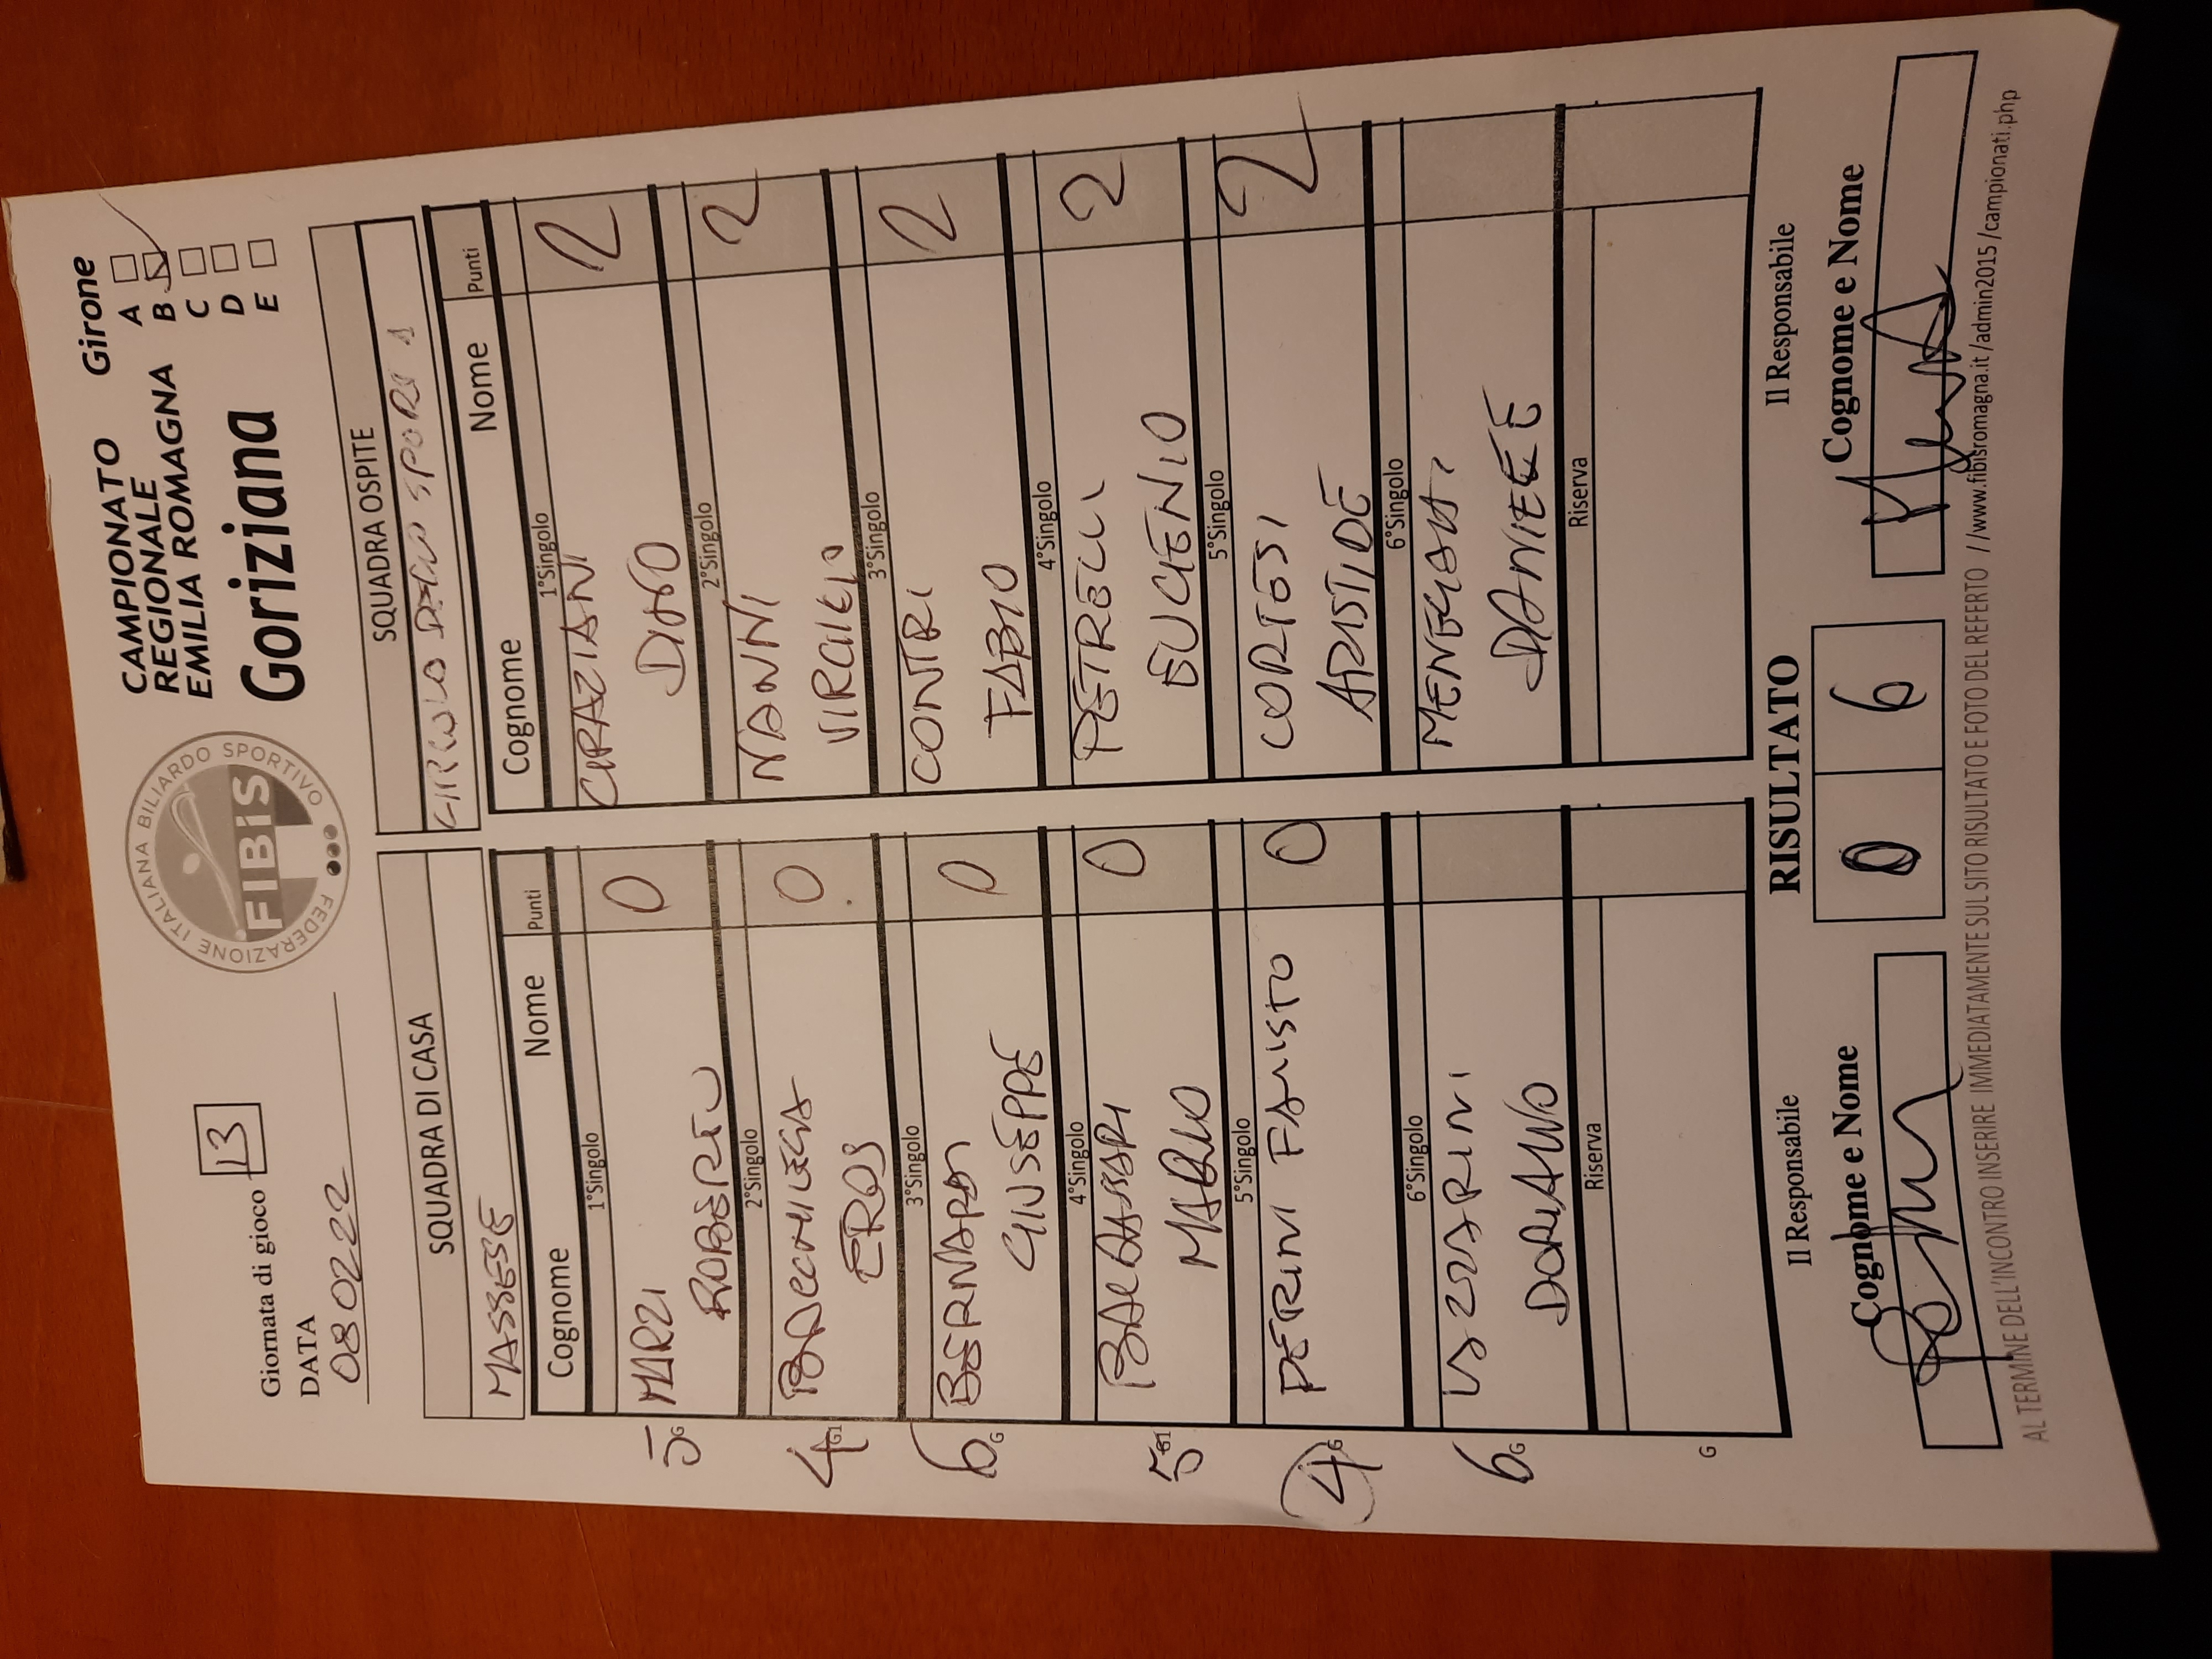 Giornata di gioco 13
DATA
080222
FEDERAZIONE ITALIANA BILIARDO SPORTIVO
FIBiS
CAMPIONATO
REGIONALE
EMILIA ROMAGNA
Goriziana
Girone
A
B
C
D
E
SQUADRA DI CASA
MASSESE
Cognome Nome Punti
1°Singolo
MARZI
ROBERTO 0
5 G
2°Singolo
EROS 0
4 G1
3°Singolo
BERNARDI
GIUSEPPE 0
6 G
4°Singolo
BALDASSARI
MARIO 0
5 G1
5°Singolo
PETRINI FAUSTO 0
4 G
6°Singolo
DORIANO
6 G
Riserva
G
SQUADRA OSPITE
CIRCOLO DELLO SPORT 1
Cognome Nome Punti
1°Singolo
GRAZIANI
2
2°Singolo
NANNI
VIRGILIO 2
3°Singolo
CONTRI
FABIO 2
4°Singolo
PETRELLI
EUGENIO 2
5°Singolo
CORTESI
ARISTIDE 2
6°Singolo
MENEGATTI
DANIELE
Riserva
Il Responsabile
RISULTATO
Il Responsabile
Cognome e Nome
0 6
Cognome e Nome
AL TERMINE DELL'INCONTRO INSERIRE IMMEDIATAMENTE SUL SITO RISULTATO E FOTO DEL REFERTO //www.fibisromagna.it /admin2015 /campionati.php